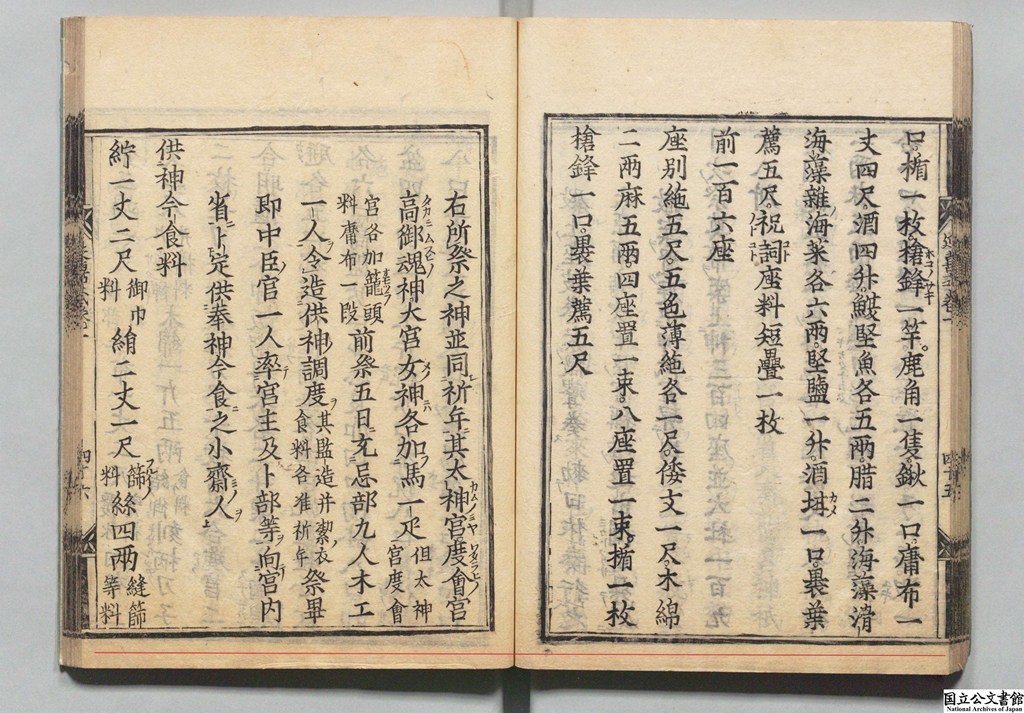 口楯一枚槍鋒一竿鹿角一隻鍬一口庸布一
丈四尺酒四升鰒堅魚各五兩腊二升海藻滑
海藻雜海菜各六兩堅鹽一升酒坩一口裹葉
薦五尺祝詞座料短疊一枚
前一百六座
座別絁五尺五色薄絁各一尺倭文一尺木綿
二兩麻五兩四座置一束八座置一束楯一枚
槍鋒一口裹葉薦五尺
右所祭之神並同祈年其太神宮度會宮
高御魂神大宮女神各加馬一疋但太神宮度會
宮各加籠頭料庸布一段前祭五日充忌部九人木工
一人令造供神調度其監造并潔衣食料各准祈年祭畢
即中臣官一人率宮主及卜部等向宮内
省卜定供奉神今食之小齋人
供神今食料
紵一丈二尺御巾料絹二丈一尺篩料絲四兩縫篩等料
四十五
四十六
国立公文書館
National Archives of Japan